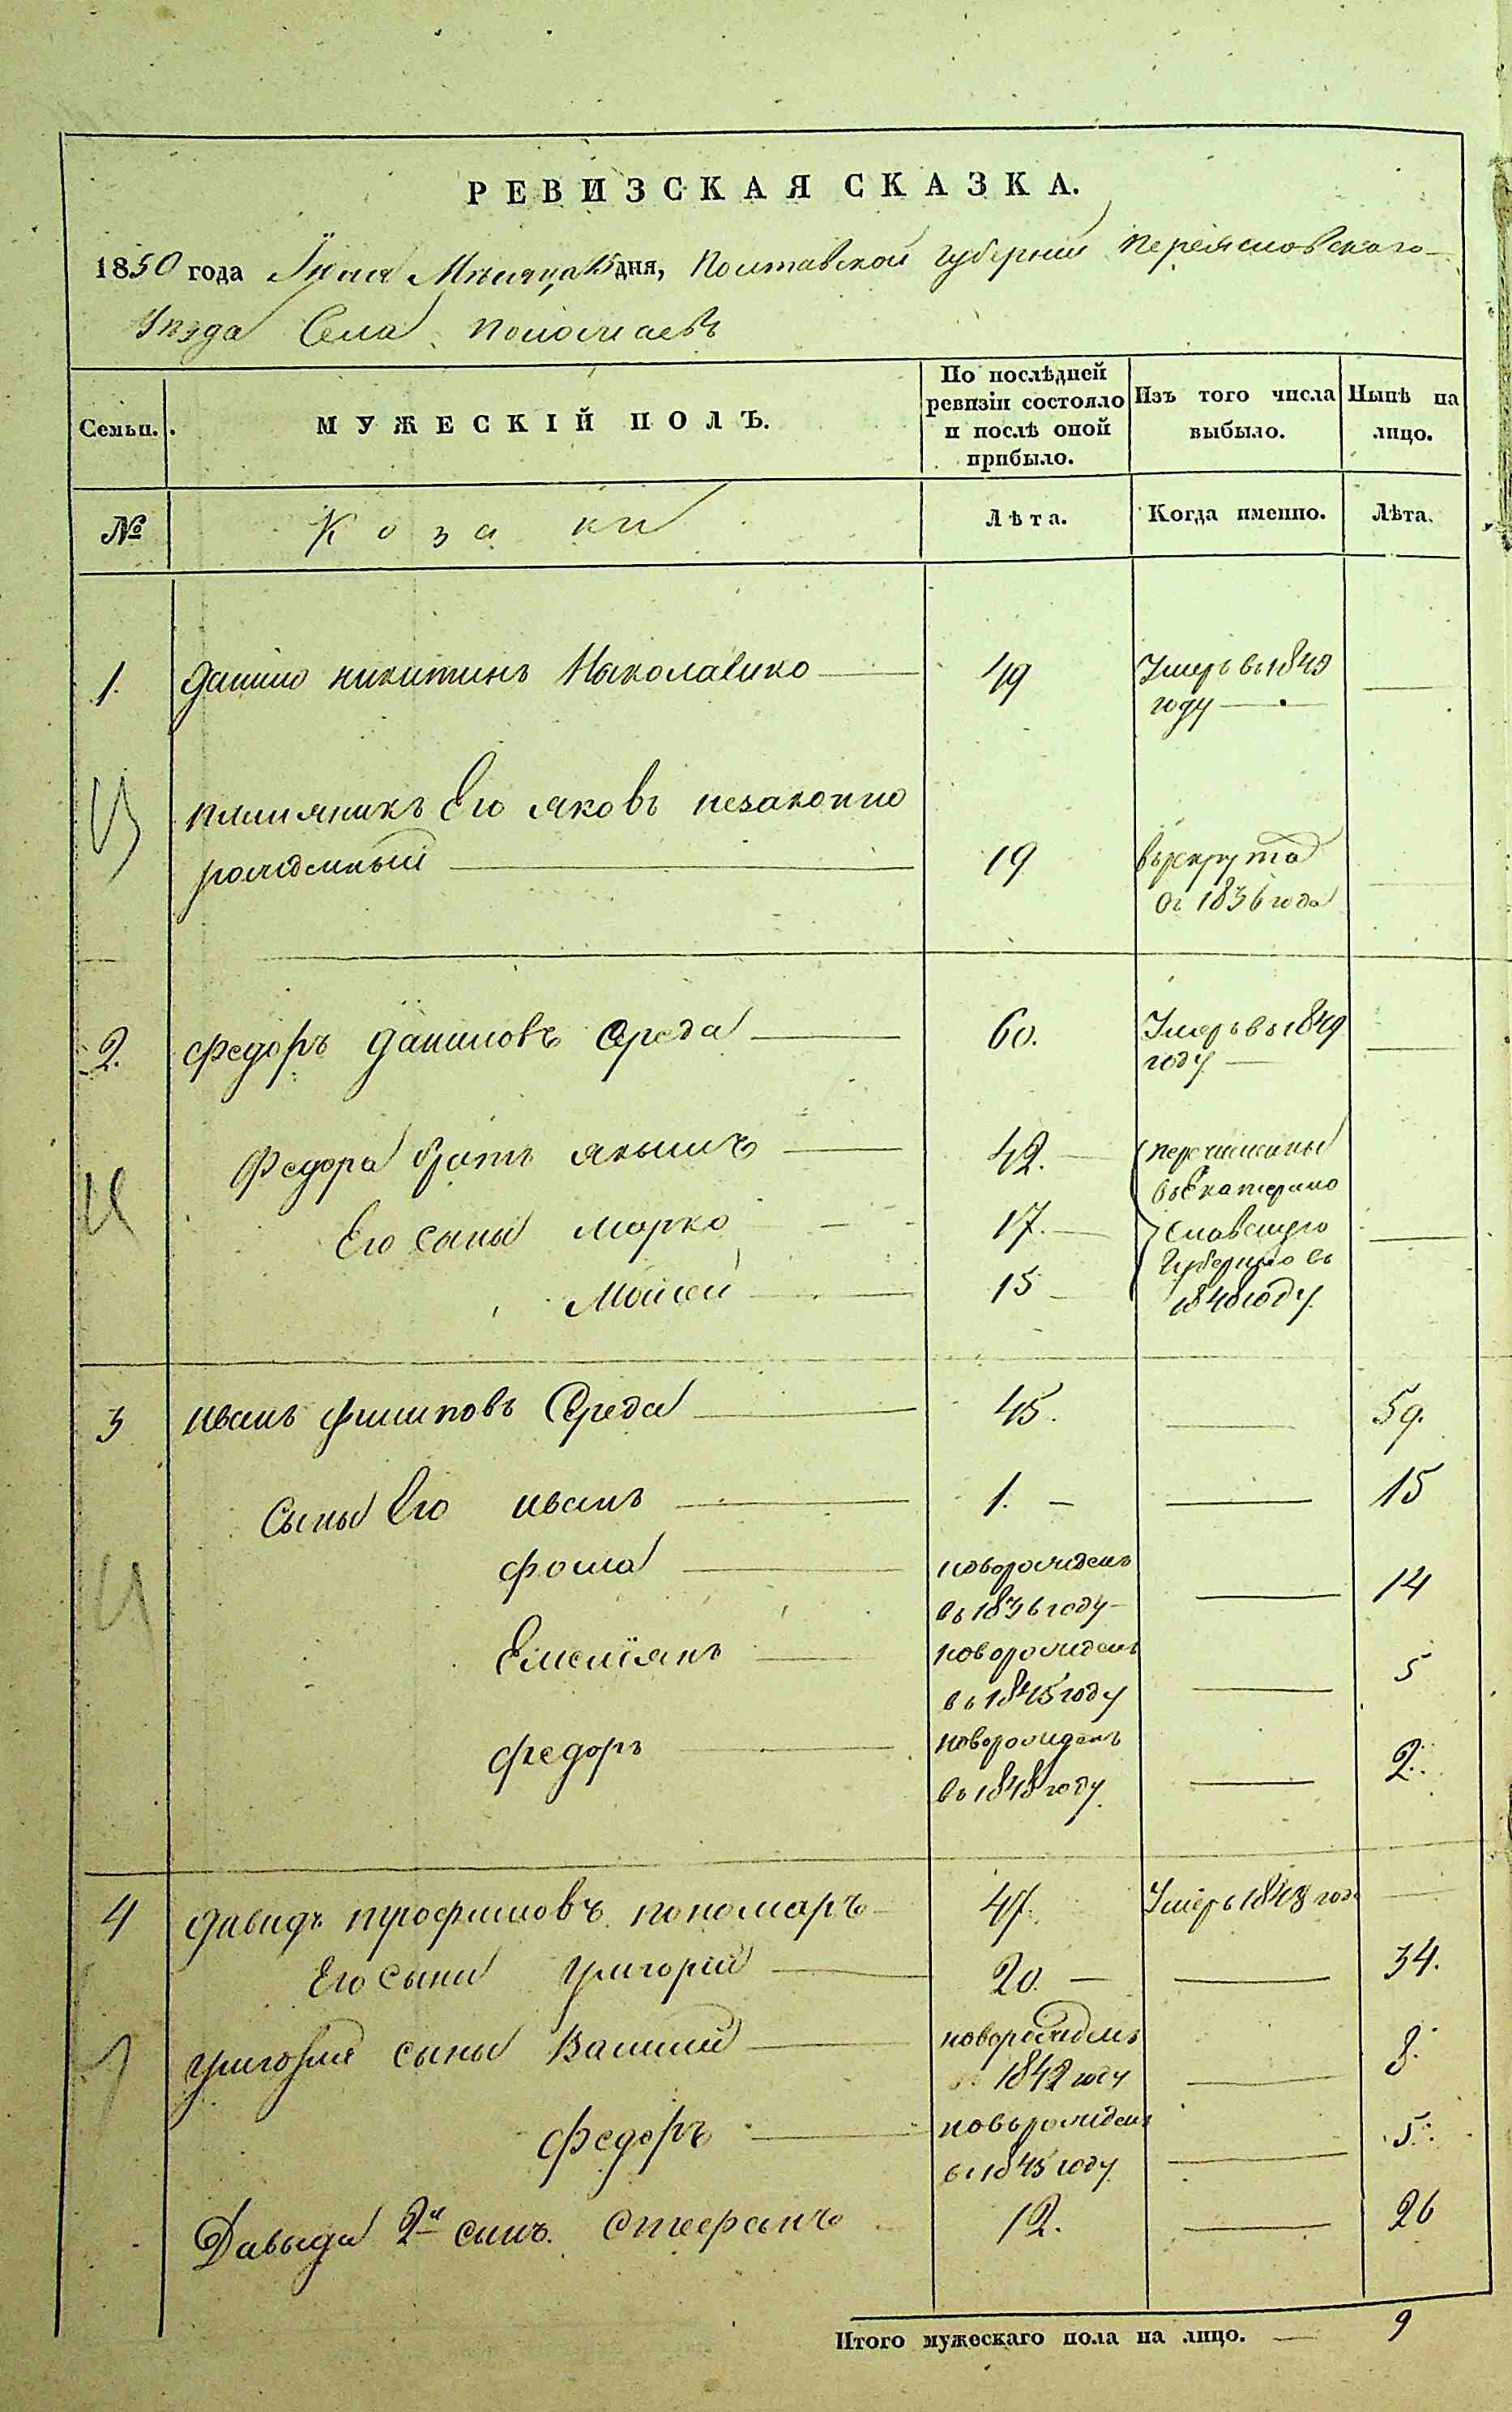 РЕВИЗСКАЯ СКАЗКА.
1850 года Іюня Мѣсяца 15 дня, Полтавской губерніи Переясловскаго
Уѣзда Села
Семьи.
МУЖЕСКІЙ ПОЛЪ.
По послѣдней ревизіи состояло и послѣ оной прибыло.
Изъ того числа выбыло.
Нынѣ на лицо.
№
Козаки
Лѣта.
Когда именно.
Лѣта.
1. Данило никитинъ 49 Умеръ въ 1849
году
племяникъ Его яковъ незаконно
рожденный 19 в рекрута
съ 1836 года
2. Федоръ даниловъ Середа 60. Умеръ въ 1849
году
Федора братъ якымъ 42. перечислены
Его сыны марко 17. въ Екатерино
славскую
Моисей 15 Губернію въ
1840 году
3 иванъ филиповъ Середа 45. 59.
Сыны Его иванъ 1. 15
фома новорожденъ 14
въ 1836 году
Емеліянъ новорожденъ 5
въ 1845 году
федоръ новорожденъ 2.
въ 1848 году
4 давидъ трофимовъ пономаръ 47. Умеръ 1848 год
Его сыны григорій 20. 34.
григорія сыны Василий новорожденъ 8.
1842 году
федоръ новорожденъ 5.
въ 1845 году
Давыда 2й сынъ. Стефанъ 12. 26
Итого мужескаго пола на лицо. 9